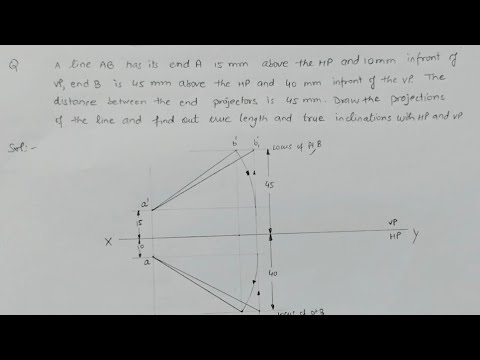 Q A line AB has its end A 15 mm above the HP and 10mm infront of
VP, end B is 45 mm above the HP and 40 mm infront of the VP. The
distance between the end projectors is 45 mm. Draw the projections
of the line and find out true length and true inclinations with HP and VP
Sol:-
b' b'₁ locus of Pt B
a'
45
15
X VP Y
10 HP
a
40
locus of